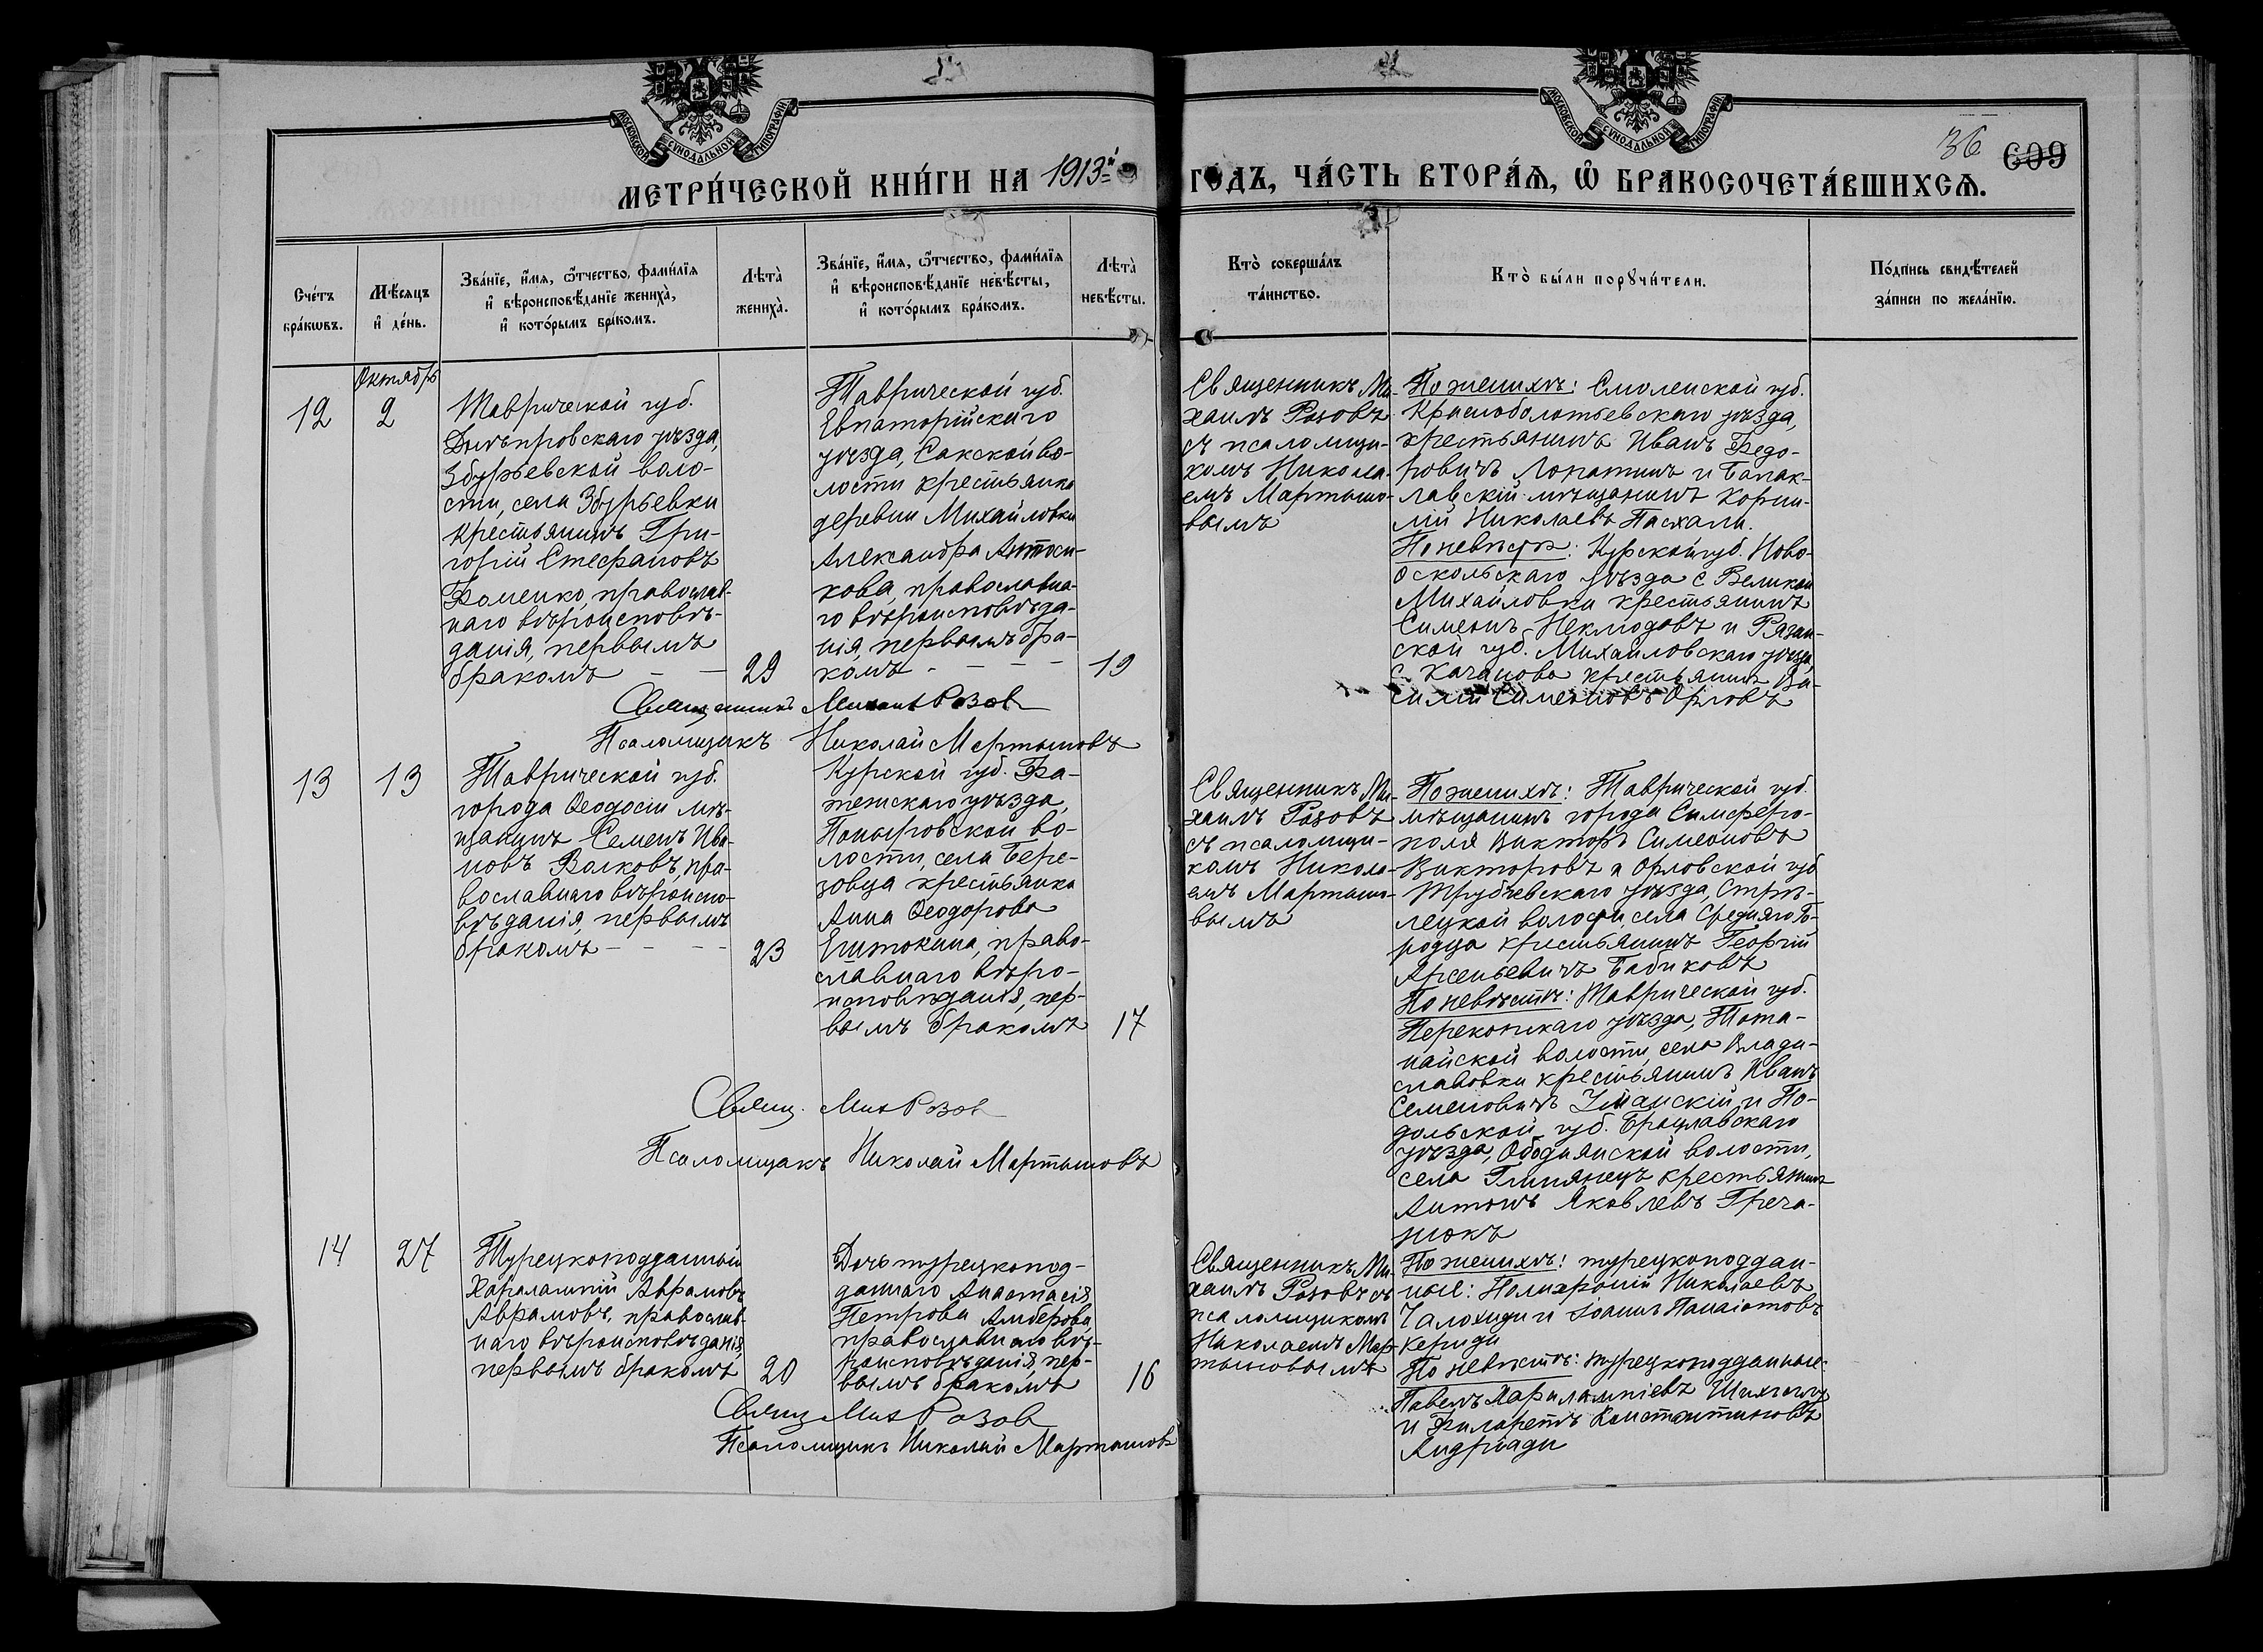 МОСКОВСКОЙ СѴНОДАЛЬНОЙ ТИПОГРАФІИ
МОСКОВСКОЙ СѴНОДАЛЬНОЙ ТИПОГРАФІИ
36 609
МЕТРИ́ЧЕСКОЙ КНИ́ГИ НА 1913й ГОДЪ, ЧА́СТЬ ВТОРА́Ѧ, Ѽ БРАКОСОЧЕТА́ВШИХСѦ.
Сче́тъ
бра́кѡвъ.
Мѣ́сяцъ
и҆ де́нь.
Зва́нїе, и҆́мя, ѻ҆́тчество, фами́лїя
и҆ вѣроисповѣ́данїе жениха̀,
и҆ кото́рымъ бра́комъ.
Лѣта̀
жениха̀.
Зва́нїе, и҆́мя, ѻ҆́тчество, фами́лїя
и҆ вѣроисповѣ́данїе невѣ́сты,
и҆ кото́рымъ бра́комъ.
Лѣта̀
невѣ́сты.
Кто̀ соверша́лъ
та́инство.
Кто̀ бы́ли порꙋчи́тели.
По́дпись свидѣ́телей
за́писи по жела́нїю.
Октябрь
12
2
Таврической губ.
Днѣпровскаго уѣзда,
Збурьевской воло-
сти, села Збурьевки
крестьянинъ Гри-
горій Стефановъ
Фоменко, православ-
наго вѣроисповѣ-
данія, первымъ
бракомъ
29
Таврической губ.
Евпаторійскаго
уѣзда, Сакской во-
лости крестьянка
деревни Михайловки
Александра Антоси-
кова, православна-
го вѣроисповѣда-
нія, первымъ бра-
комъ
19
Священникъ Ми-
хаилъ Розовъ
съ псаломщи-
комъ Никола-
емъ Мартыно-
вымъ
По женихѣ: Смоленской губ.
Красноболотьевскаго уѣзда,
крестьянинъ Иванъ Федо-
ровичъ Лопатинъ и Балак-
лавскій мѣщанинъ Корни-
лій Николаевъ Пасхали.
По невѣстѣ: Курской губ. Ново-
оскольскаго уѣзда с Великой
Михайловки крестьянинъ
Симеонъ Неклюдовъ и Рязан-
ской губ. Михайловскаго уѣзда
с. Качанова крестьянинъ Ва-
силій Симеоновъ Орловъ
Священникъ Михаилъ Розов
Псаломщикъ Николай Мартыновъ
13
13
Таврической губ.
города Ѳеодосіи мѣ-
щанинъ Семенъ Ива-
новъ Волковъ, пра-
вославнаго вѣроиспо-
вѣданія, первымъ
бракомъ
23
Курской губ. Фа-
тежскаго уѣзда,
Поныровской во-
лости, села Бере-
зовца крестьянка
Анна Ѳеодорова
Енютокина, право-
славнаго вѣро-
исповѣданія, пер-
вымъ бракомъ
17
Священникъ Ми-
хаилъ Розовъ
съ псаломщи-
комъ Никола-
емъ Мартыно-
вымъ
По женихѣ: Таврической губ.
мѣщанинъ города Симферо-
поля Викторъ Симеоновъ
Викторовъ и Орловской губ
Трубчевскаго уѣзда, Стрѣ-
лецкой волости, села Средняго Го-
родца крестьянинъ Георгій
Арсеньевичъ Бабиковъ
По невѣстѣ: Таврической губ.
Перекопскаго уѣзда, Тота-
найской волости, села Влади-
славовки крестьянинъ Иванъ
Семеновичъ Уманскій и По-
дольской губ. Брацлавскаго
уѣзда, Ободнянской волости,
села Глинянецъ крестьянинъ
Антонъ Яковлевъ Греча-
нюкъ
Свящ. Мих Розов
Псаломщикъ Николай Мартыновъ
14
27
Турецкоподданный
Харалампій Аврамовъ
Аврамовъ, православ-
наго вѣроисповѣданія,
первымъ бракомъ
20
Дочь турецкопод-
даннаго Анастасія
Петрова Алиберова,
православнаго вѣ-
роисповѣданія, пер-
вымъ бракомъ
16
Священникъ Ми-
хаилъ Розовъ съ
псаломщикомъ
Николаемъ Мар-
тыновымъ
По женихѣ: турецкоподдан-
ные: Полихроній Николаевъ
Чалохиди и Іоаннъ Панаіотовъ
Кериди
По невѣстѣ: турецкоподданные:
Павелъ Харалампіевъ
и Филаретъ Константиновъ
Андріади
Свящ Мих Розов
Псаломщикъ Николай Мартыновъ